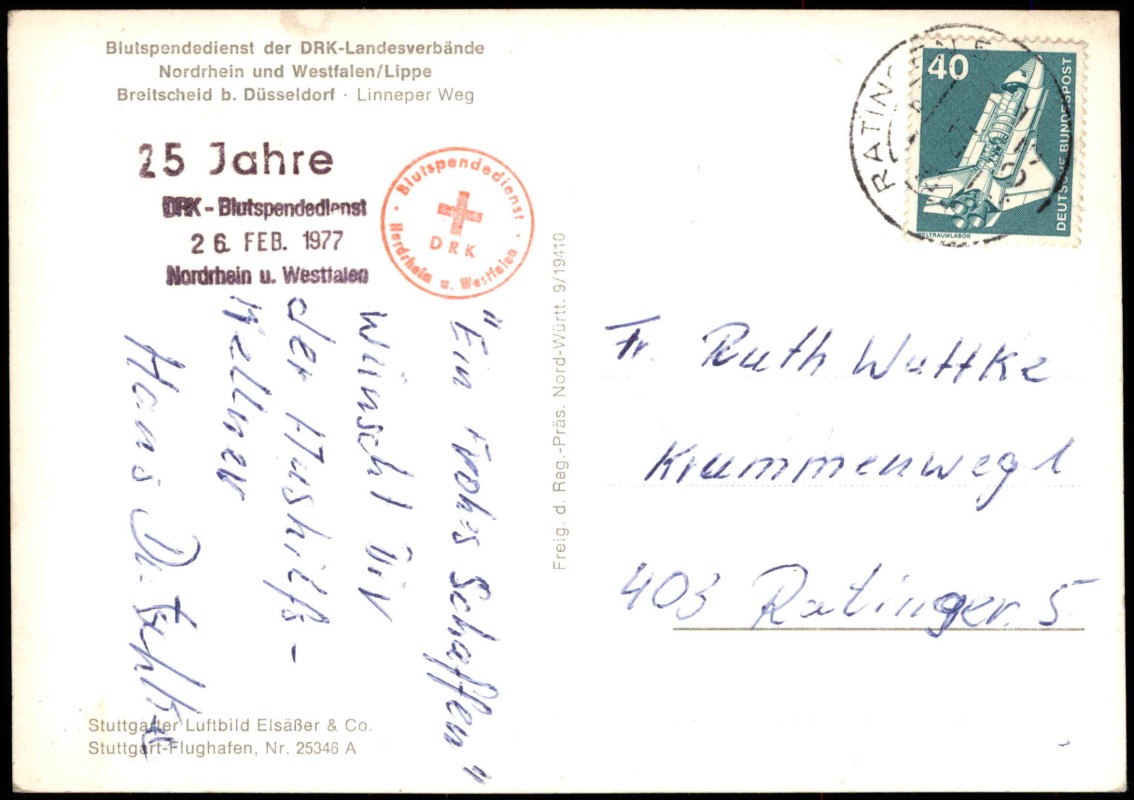 Blutspendedienst der DRK-Landesverbände
Nordrhein und Westfalen/Lippe
Breitscheid b. Düsseldorf · Linneper Weg
25 Jahre
DRK - Blutspendedienst
26. FEB. 1977
Nordrhein u. Westfalen
Blutspendedienst
DRK
Nordrhein u. Westfalen
"Ein frohes Schaffen"
wünscht Dir
der Aushilfs-
kellner
Hans
Stuttgarter Luftbild Elsäßer & Co.
Stuttgart-Flughafen, Nr. 25346 A
Freig. d. Reg.-Präs. Nord-Württ. 9/19410
RATINGEN
40
DEUTSCHE BUNDESPOST
WELTRAUMLABOR
Fr. Ruth Wuttke
Krummenweg 1
403 Ratingen 5